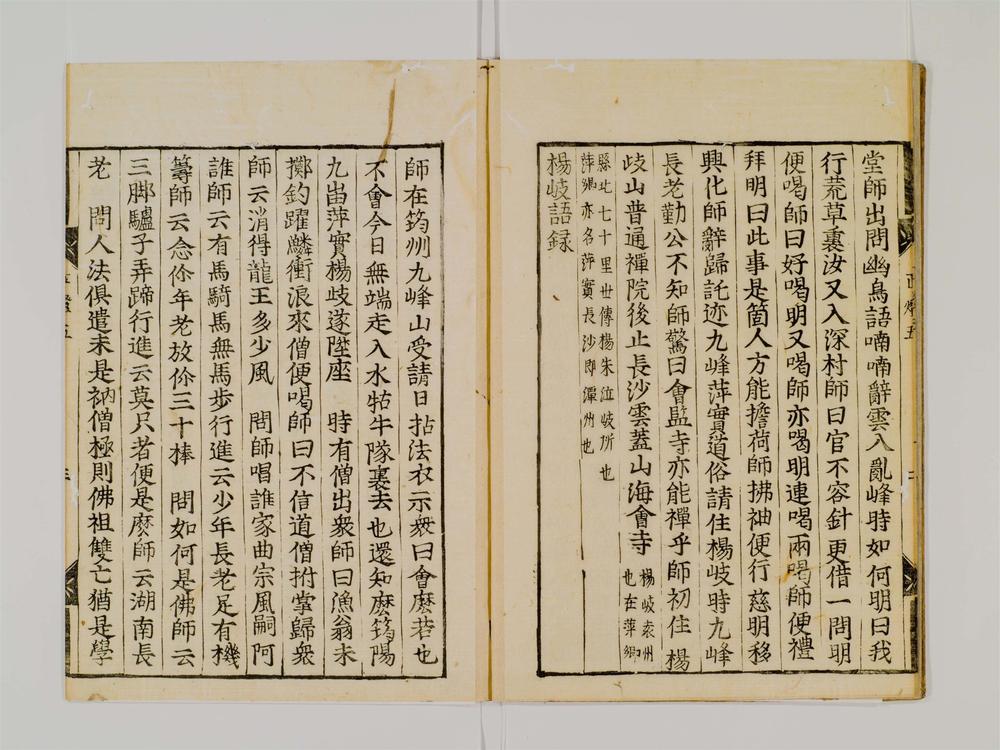 堂師出問幽鳥語喃喃辭雲入亂峰時如何明曰我
行荒草裏汝又入深村師曰官不容針更借一問明
便喝師曰好喝明又喝師亦喝明連喝兩喝師便禮
拜明曰此事是箇人方能擔荷師拂袖便行慈明移
興化師辭歸託迹九峰萍實道俗請住楊岐時九峰
長老勤公不知師驚曰會監寺亦能禪乎師初住楊
岐山普通禪院後止長沙雲蓋山海會寺
楊岐袁州
也在萍鄉
縣北七十里世傳楊朱泣岐所也
萍鄉亦名萍實長沙即潭州也
楊岐語録
師在筠州九峰山受請日拈法衣示衆曰會麼若也
不會今日無端走入水牯牛隊裏去也還知麼筠陽
九峀萍實楊岐遂陞座 時有僧出衆師曰漁翁未
擲釣躍鱗衝浪來僧便喝師曰不信道僧拊掌歸衆
師云消得龍王多少風 問師唱誰家曲宗風嗣阿
誰師云有馬騎馬無馬歩行進云少年長老足有機
籌師云念伱年老放伱三十棒 問如何是佛師云
三脚驢子弄蹄行進云莫只者便是麼師云湖南長
老 問人法俱遣未是衲僧極則佛祖雙亡猶是學